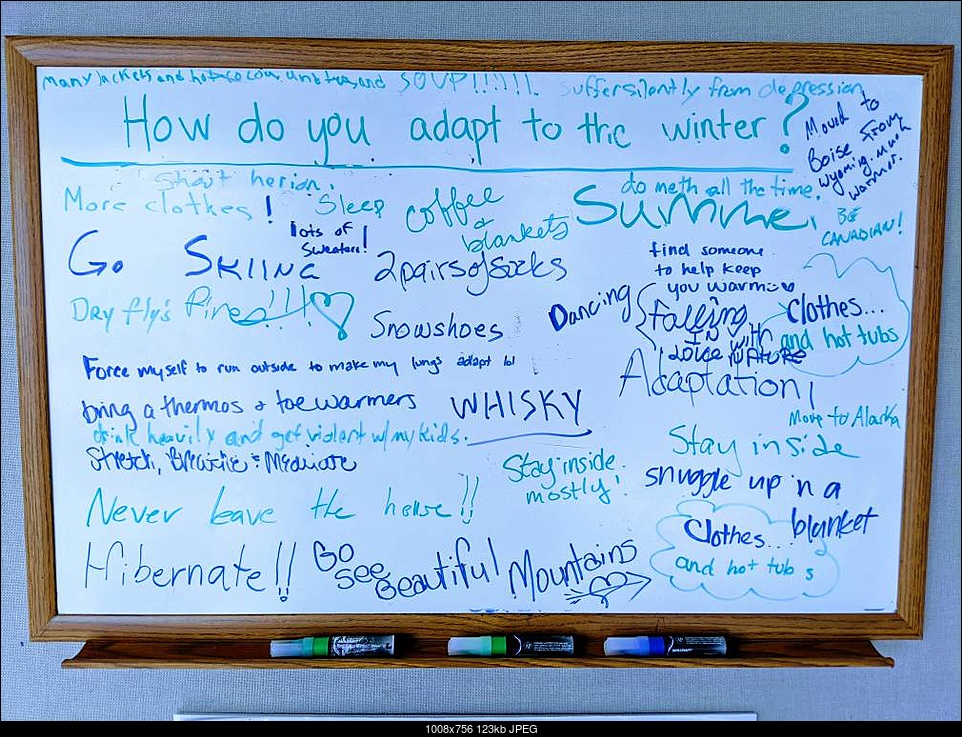 Many Jackets and hot cocoa, and SOUP!!!!!!
suffer silently from depression
How do you adapt to the winter?
Moved to
Boise from
wyoming. Much
warmer.
Shoot herion.
do meth all the time.
More clothes!
Sleep
coffee
&
blankets
Summer
BE
CANADIAN!
lots of
Sweaters!
Go SKIING
2 pairs of socks
find someone
to help keep
you warm
Dry fly's
fires!!!!
Snowshoes
Dancing
falling
IN
love with
NATURE
Clothes...
and hot tubs
Force myself to run outside to make my lungs adapt lol
Adaptation!
bring a thermos & toe warmers
WHISKY
Move to Alaska
drink heavily and get violent w/ my kids.
Stay inside
Stretch, Breathe & Meditate
Stay inside
mostly!
snuggle up in a
blanket
Never leave the house!!
Clothes...
and hot tubs
Hibernate!!
Go
see
Beautiful Mountains
1008x756 123kb JPEG